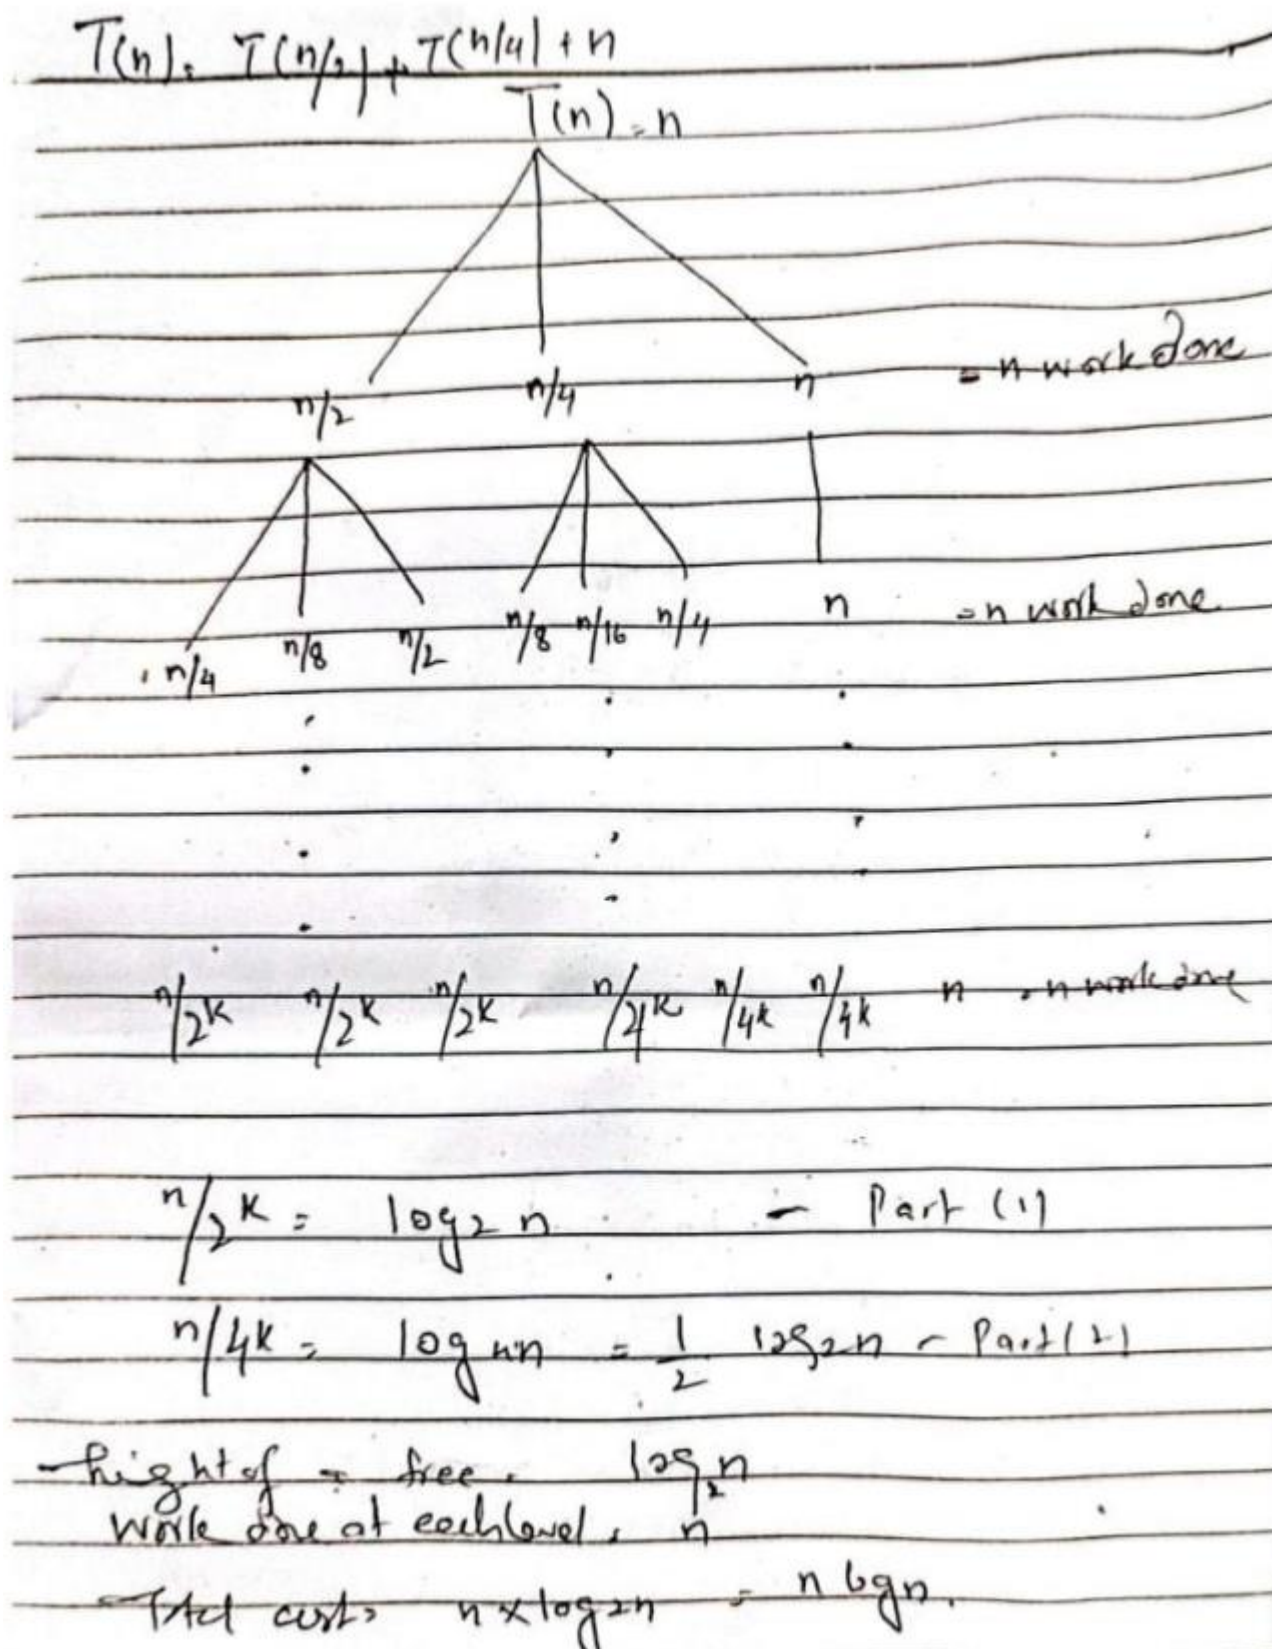 T(n) = T(n/2) + T(n/4) + n
T(n) = n
n/2 n/4 n = n work done
n/4 n/8 n/2 n/8 n/16 n/4 n = n work done
n/2^k n/2^k n/2^k n/4^k n/4^k n/4^k n = n work done
n/2^k = log2 n - Part (1)
n/4^k = log4n = 1/2 log2n - Part (2)
hight of = tree. log2n
work done at each level. n
Total cost = n x log2n = n logn.